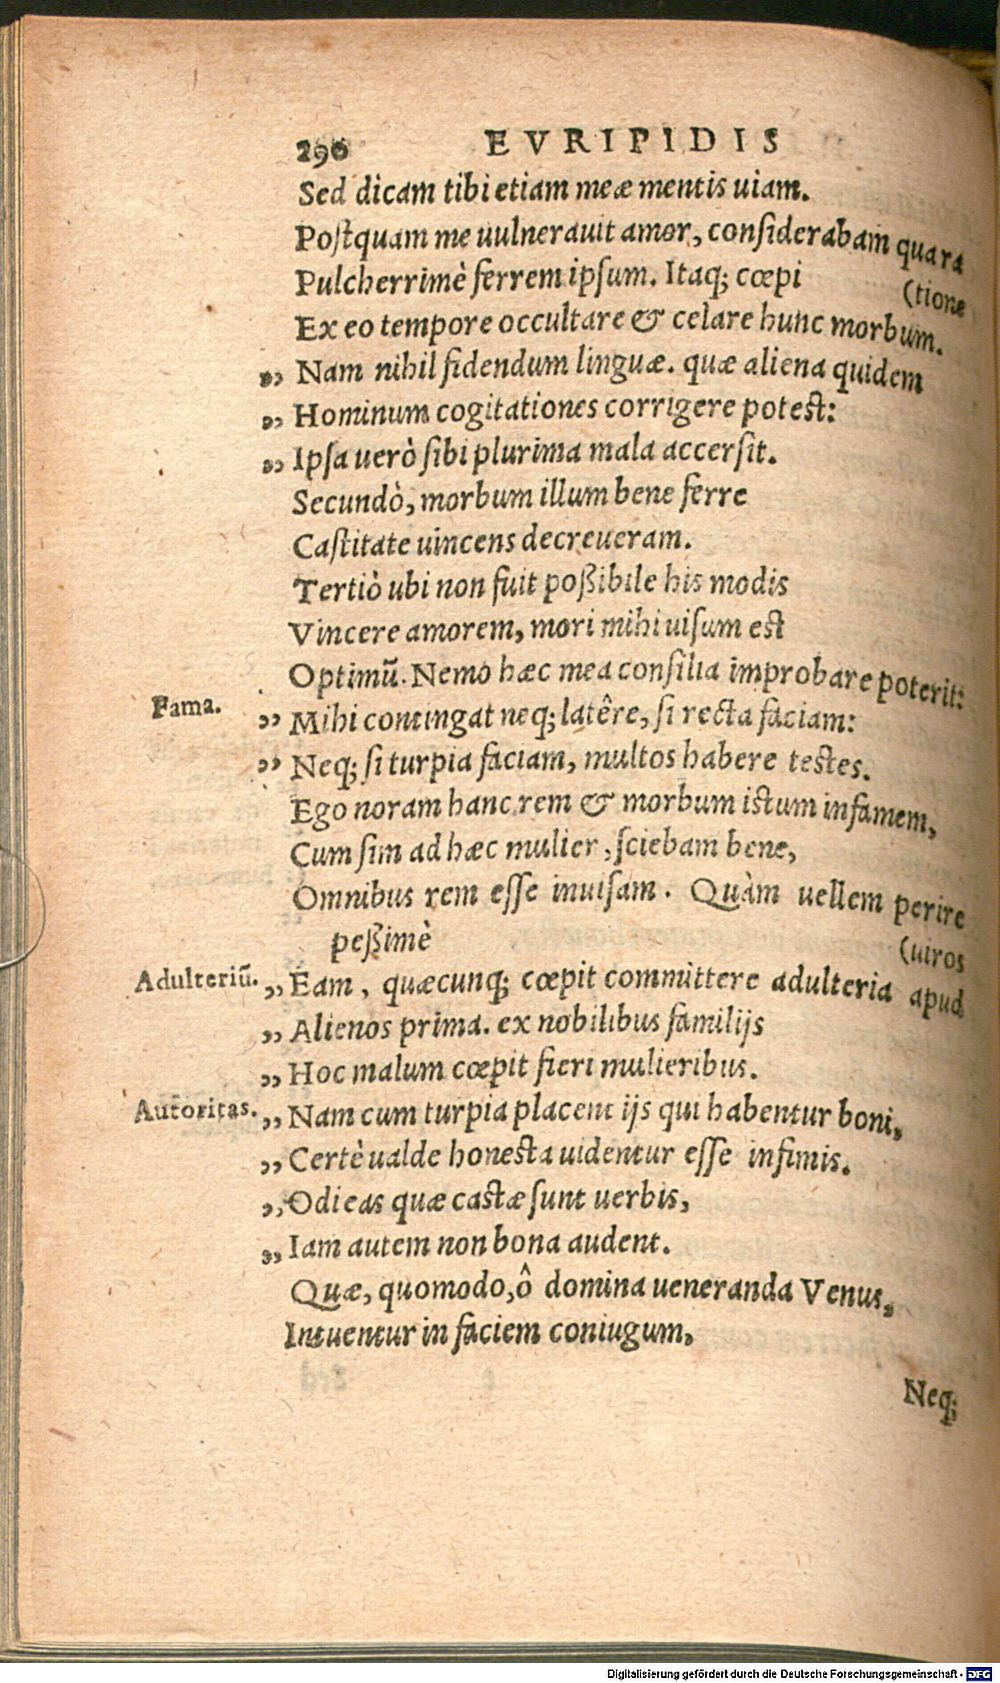 296 EVRIPIDIS
Sed dicam tibi etiam meæ mentis uiam.
Postquam me uulnerauit amor, considerabam qua ra
Pulcherrimè ferrem ipsum. Itaq; cœpi (tione
Ex eo tempore occultare & celare hunc morbum.
„ Nam nihil fidendum linguæ. quæ aliena quidem
„ Hominum cogitationes corrigere potest:
„ Ipsa uerò sibi plurima mala accersit.
Secundò, morbum illum bene ferre
Castitate uincens decreueram.
Tertiò ubi non fuit poßibile his modis
Vincere amorem, mori mihi uisum est
Optimũ. Nemo hæc mea consilia improbare poterit:
Fama. „ Mihi contingat neq; latêre, si recta faciam:
„ Neq; si turpia faciam, multos habere testes.
Ego noram hanc rem & morbum istum infamem,
Cum sim ad hæc mulier, sciebam bene,
Omnibus rem esse inuisam. Quàm uellem perire
peßimè (uiros
Adulteriũ. „ Eam, quæcunq; cœpit committere adulteria apud
„ Alienos prima. ex nobilibus familijs
„ Hoc malum cœpit fieri mulieribus.
Autoritas. „ Nam cum turpia placent ijs qui habentur boni,
„ Certè ualde honesta uidentur esse infimis.
„ Odi eas quæ castæ sunt uerbis,
„ Iam autem non bona audent.
Quæ, quomodo, ô domina ueneranda Venus,
Intuentur in faciem coniugum,
Neq;
Digitalisierung gefördert durch die Deutsche Forschungsgemeinschaft - DFG